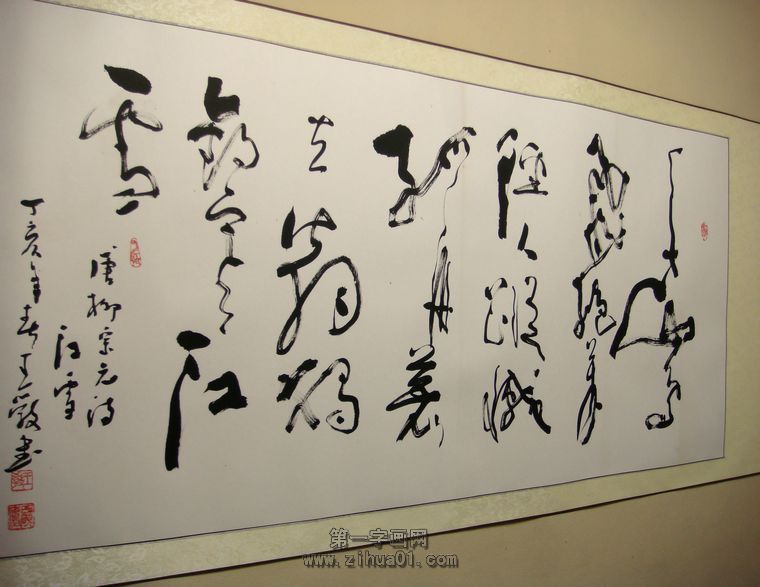 千山鳥
飛絕萬
徑人蹤滅
孤舟蓑
笠翁獨
釣寒江
雪
唐柳宗元诗
江雪
丁亥年春王书
第一字画网
www.zihua01.com